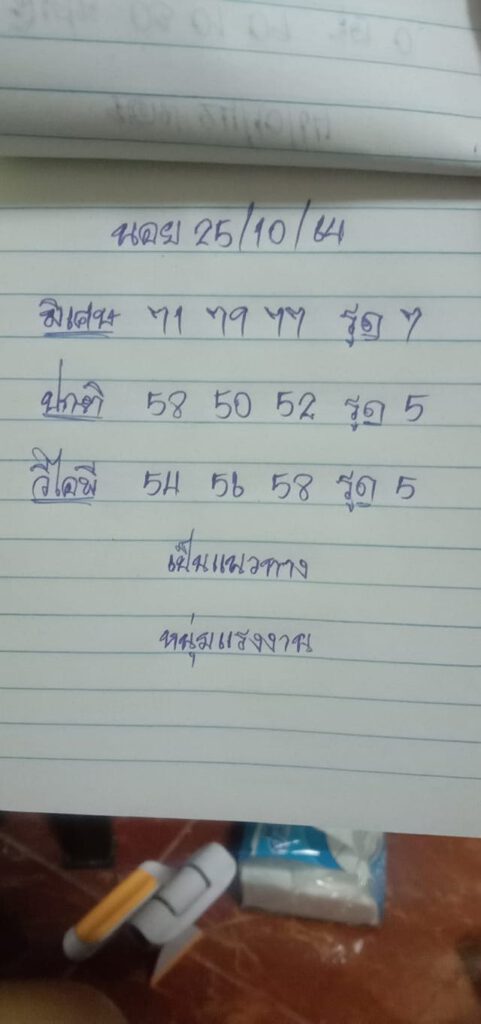 นอย 25/10/64
พิเศษ 71 79 77 รูด 7
ปกติ 58 50 52 รูด 5
วีไอพี 54 56 58 รูด 5
เป็นแนวทาง
หนุ่มแรงงาน